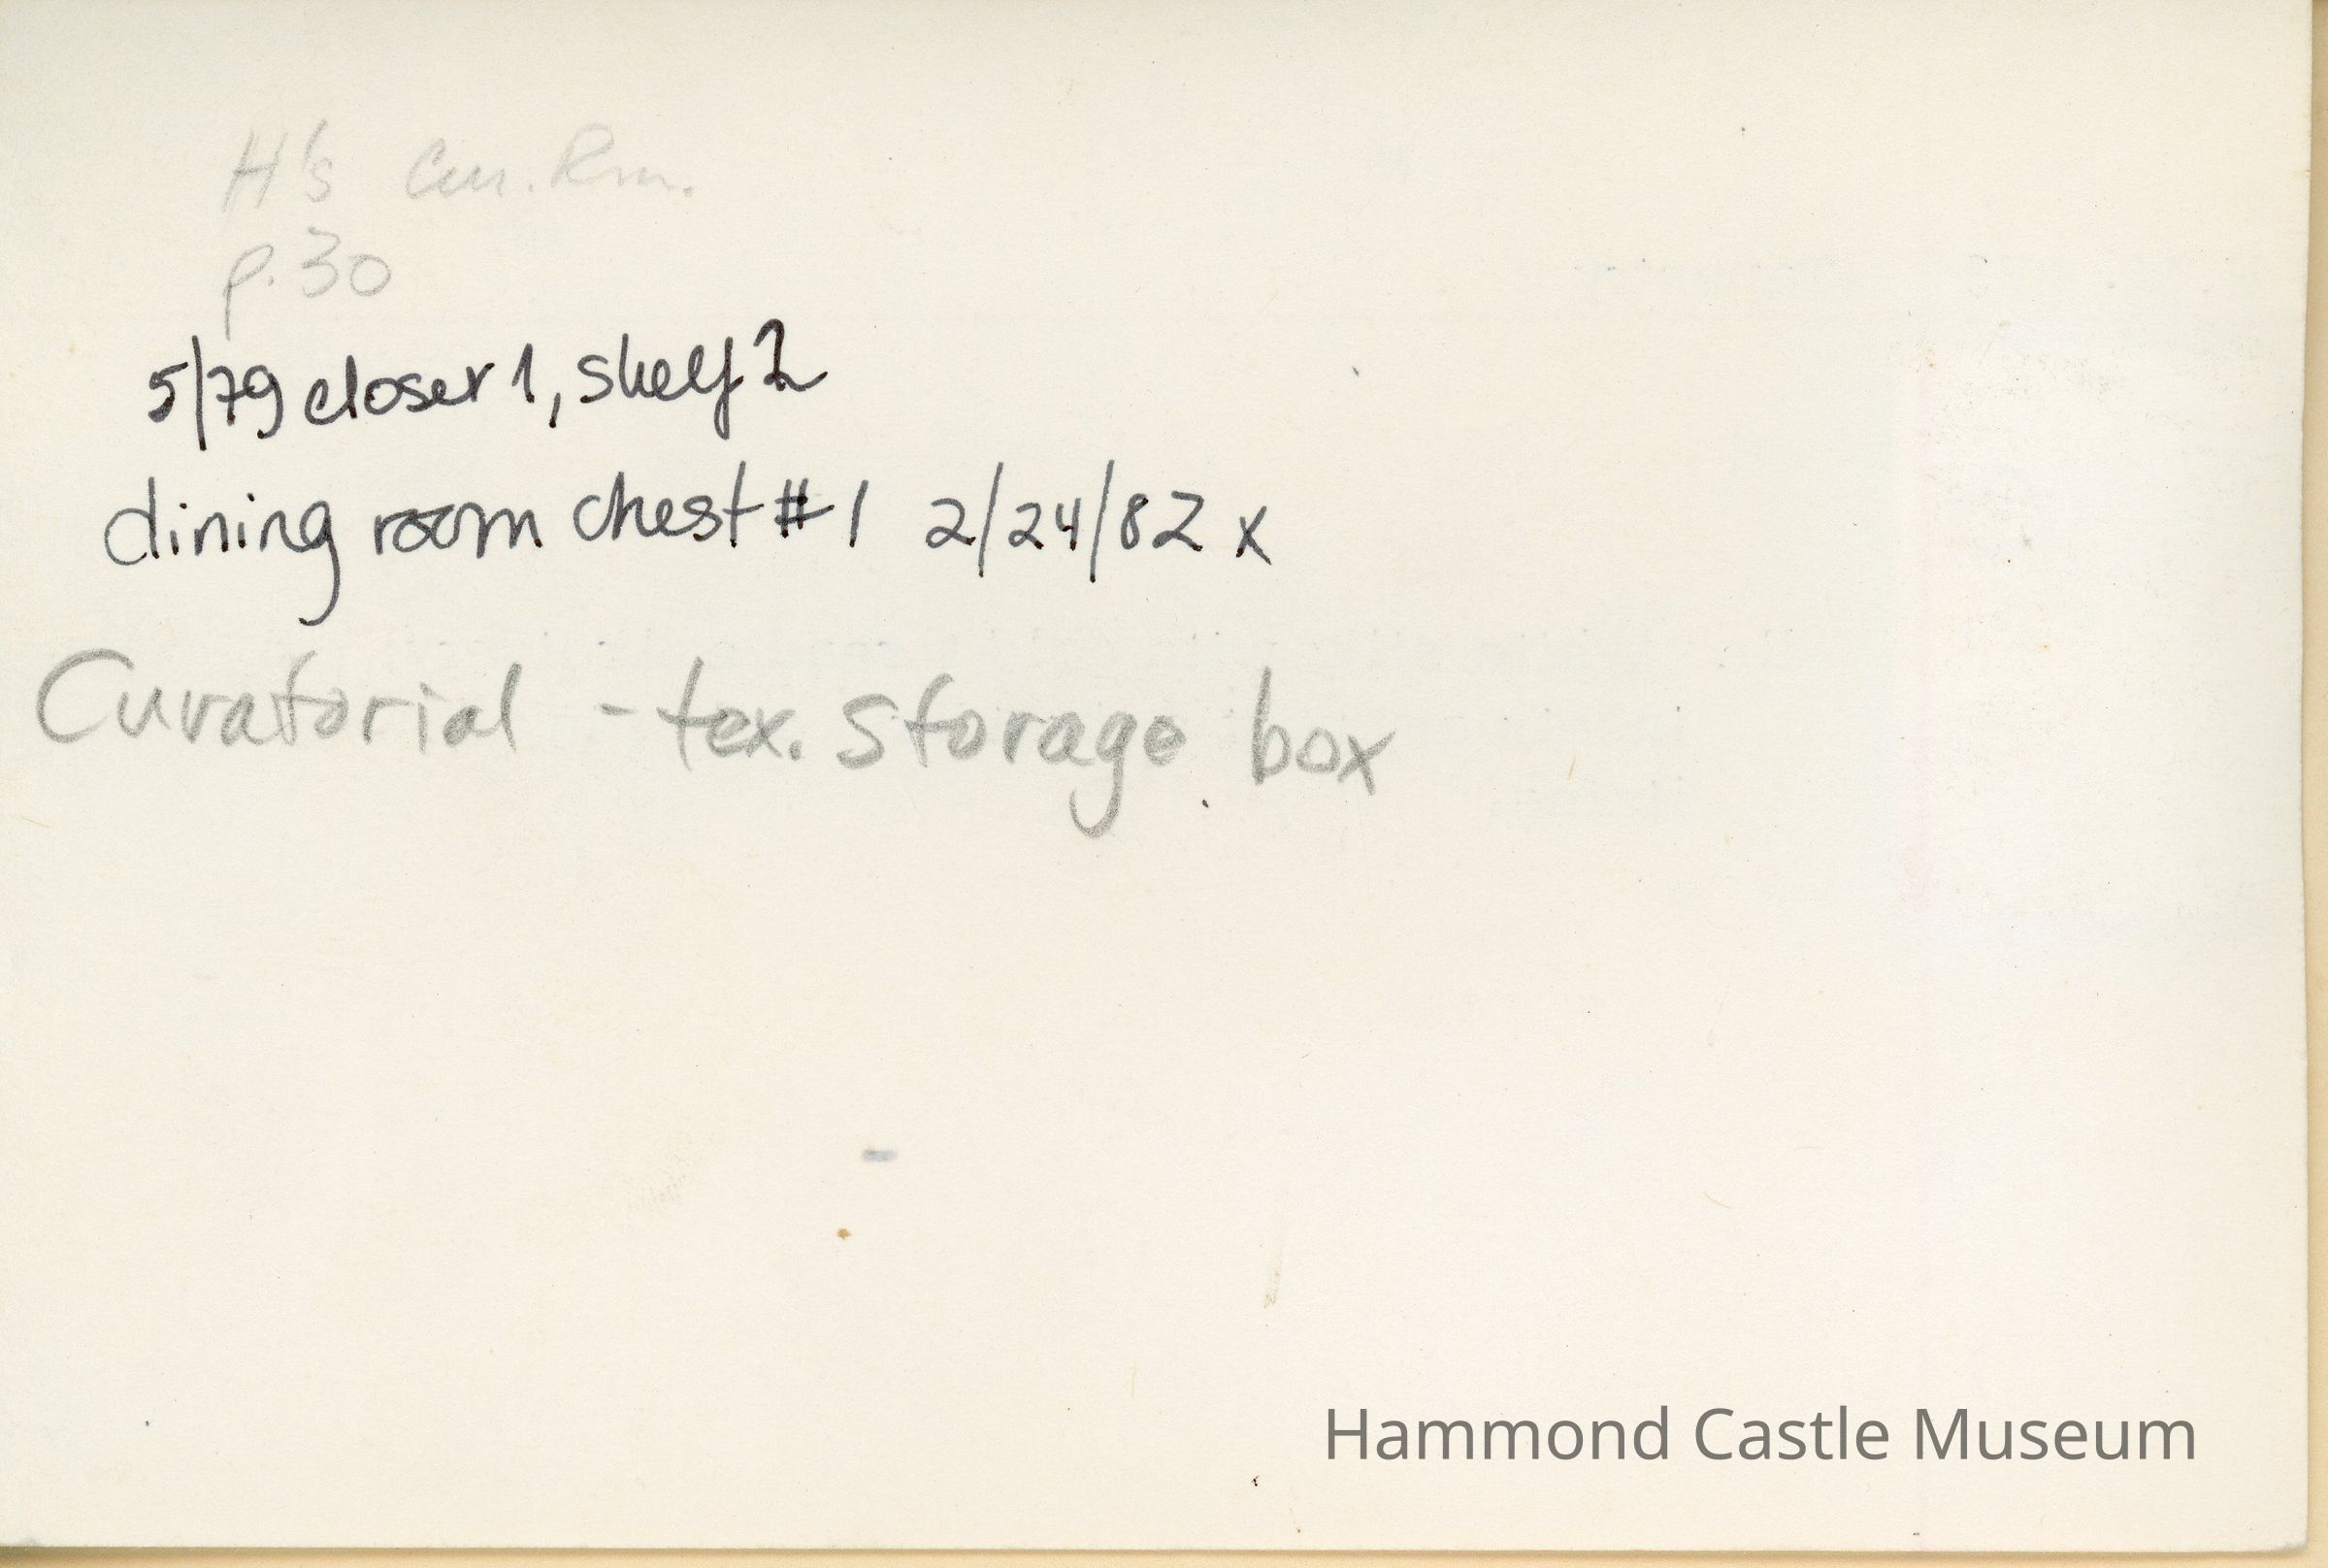 H's Cur. Rm.
p.30
5/79 closet 1, shelf 2
dining room chest #1 2/24/82 x
Curatorial - tex. storage box
Hammond Castle Museum